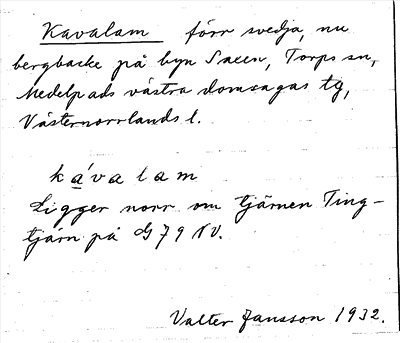 Kavalam förr svedja, nu
bergbacke på byn Saeen, Torps sn,
Medelpads västra domsagas tg,
Västernorrlands l.
kávalam
Ligger norr om tjärnen Ting-
tjärn på G 79 NV.
Valter Jansson 1932.